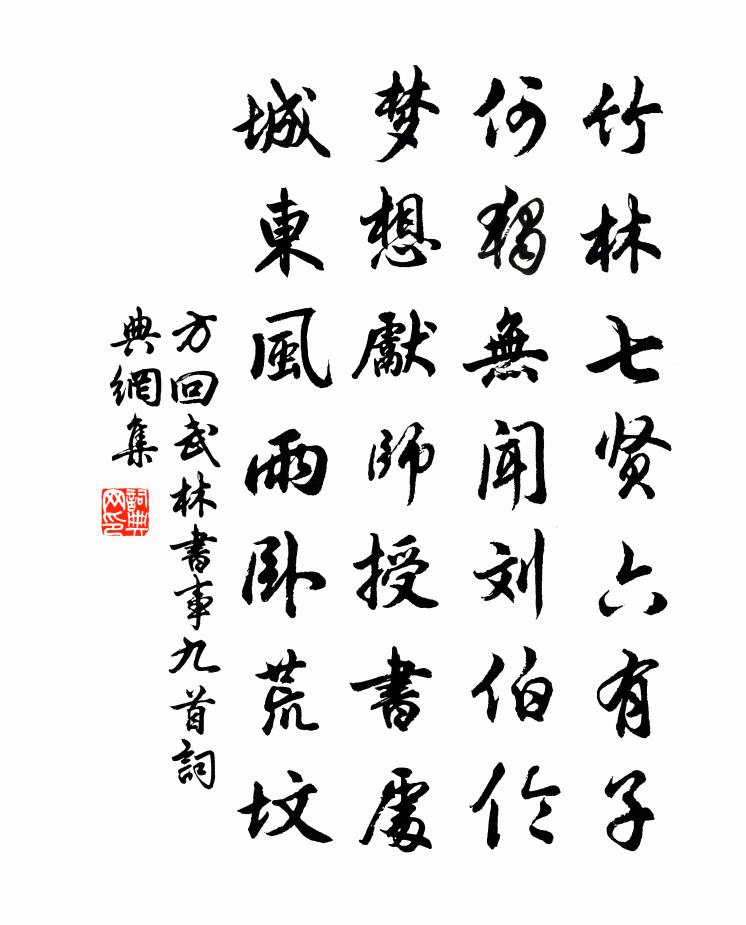 竹林七贤六有子
何独無聞刘伯伦
梦想獻師授書處
城東風雨卧荒坟
方回武林書事九首詞
典網集
詞典网印